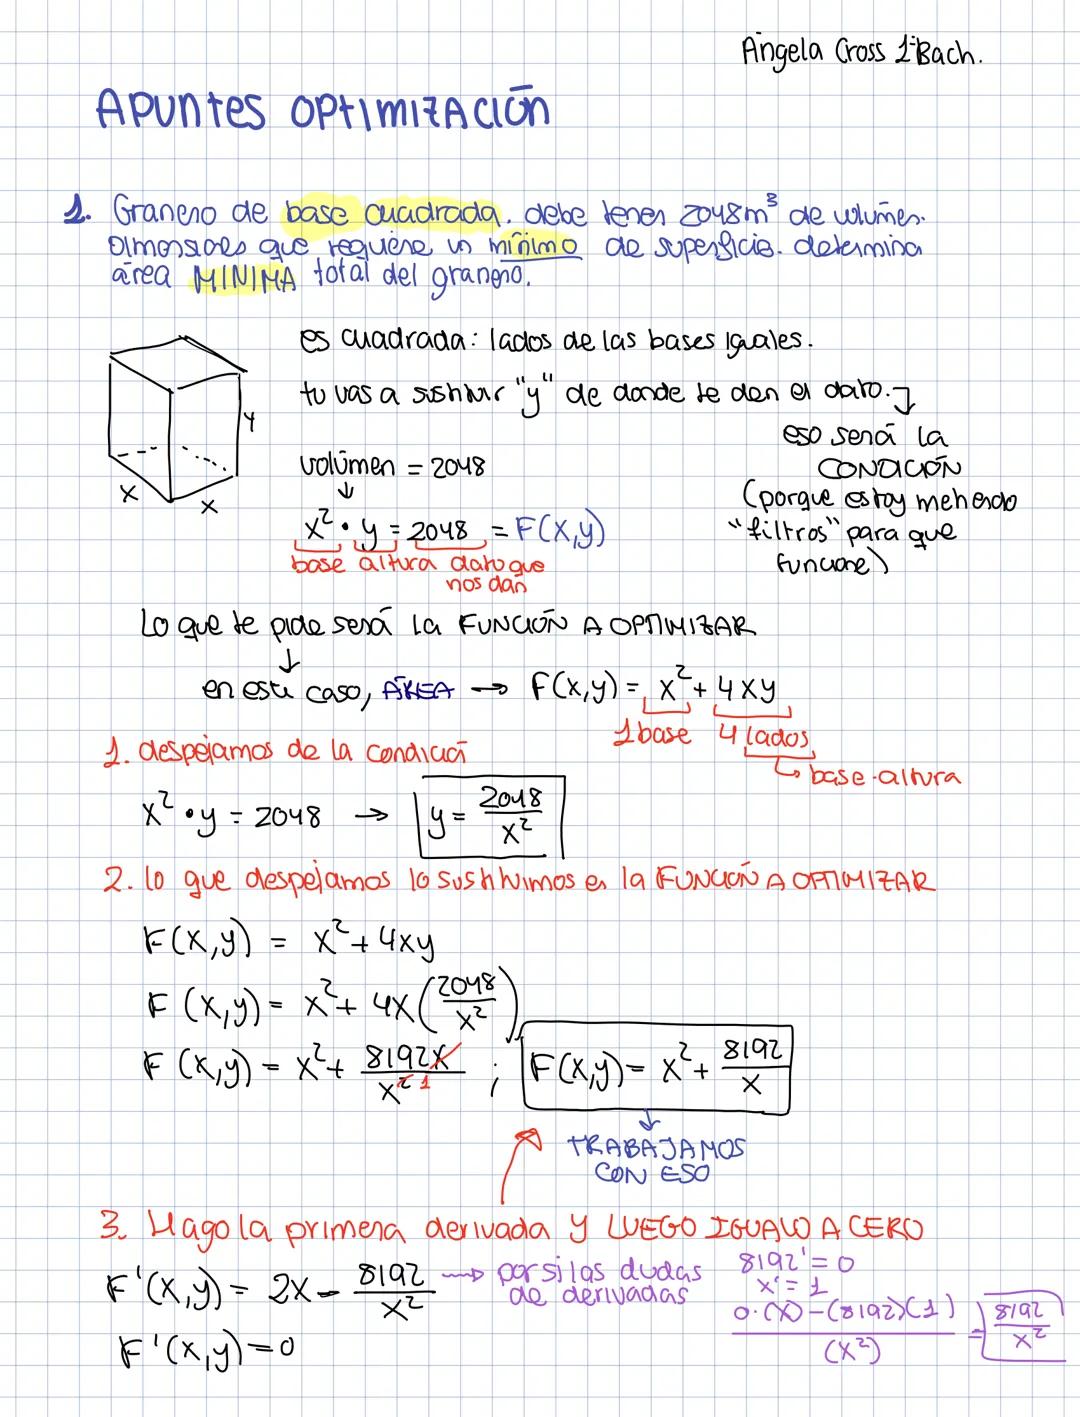 Ángela Cross 1ºBach.
APUNTES OPTIMIZACIÓN
1. Granero de base cuadrada. debe tener 2048m³ de volumen.
Dimensiones que requiere un mínimo de superficie. determina
área MINIMA total del granero.
es cuadrada: lados de las bases iguales.
tu vas a sustituir "y" de donde te den el dato.
y
x
x
eso será la
CONDICIÓN
(porque estoy metiendo
"filtros" para que
funcione)
volúmen = 2048
x² · y = 2048 = F(x,y)
base altura dato que
nos dan
Lo que te pide será la FUNCIÓN A OPTIMIZAR
en este caso, ÁREA → F(x,y) = x² + 4xy
1 base 4 lados
base·altura
1. despejamos de la condición
x² · y = 2048 → y = 2048/x²
2. lo que despejamos lo sustituimos en la FUNCIÓN A OPTIMIZAR
F(x,y) = x² + 4xy
F(x,y) = x² + 4x(2048/x²)
F(x,y) = x² + 8192x/x² 1 ; F(x,y) = x² + 8192/x
TRABAJAMOS
CON ESO
3. Hago la primera derivada y LUEGO IGUALO A CERO
F'(x,y) = 2x - 8192/x² → por si las dudas
de derivadas
8192' = 0
x' = 1
0·(x) - (8192)(1)/(x²) = 8192/x²
F'(x,y) = 0